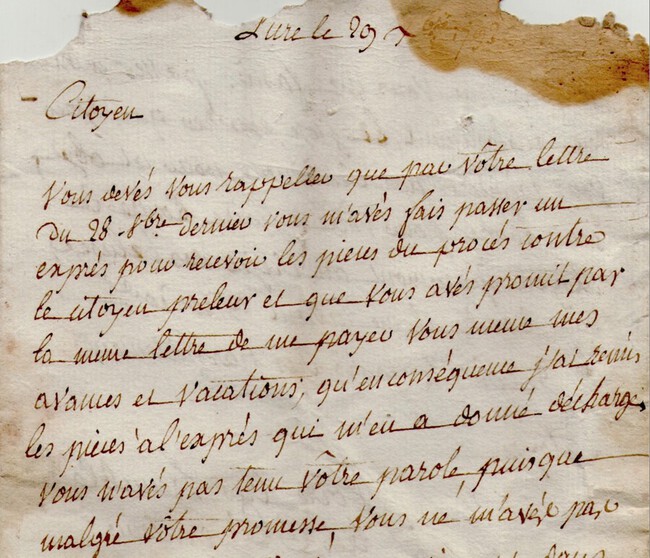 Lure le 29
Citoyen
Vous devés vous rappeller que par vôtre lettre
du 28. 8bre dernier vous m'avés fais passer un
exprés pour recevoir les pieces du procés contre
le citoyen preleur et que vous avés promit par
la meme lettre de me payer vous meme mes
avances et vacations, qu'en conséquence j'ai remis
les pieces a l'exprés qui m'en a donné décharge,
vous n'avés pas tenu vôtre parole, puisque
malgré vôtre promesse, vous ne m'avés pas